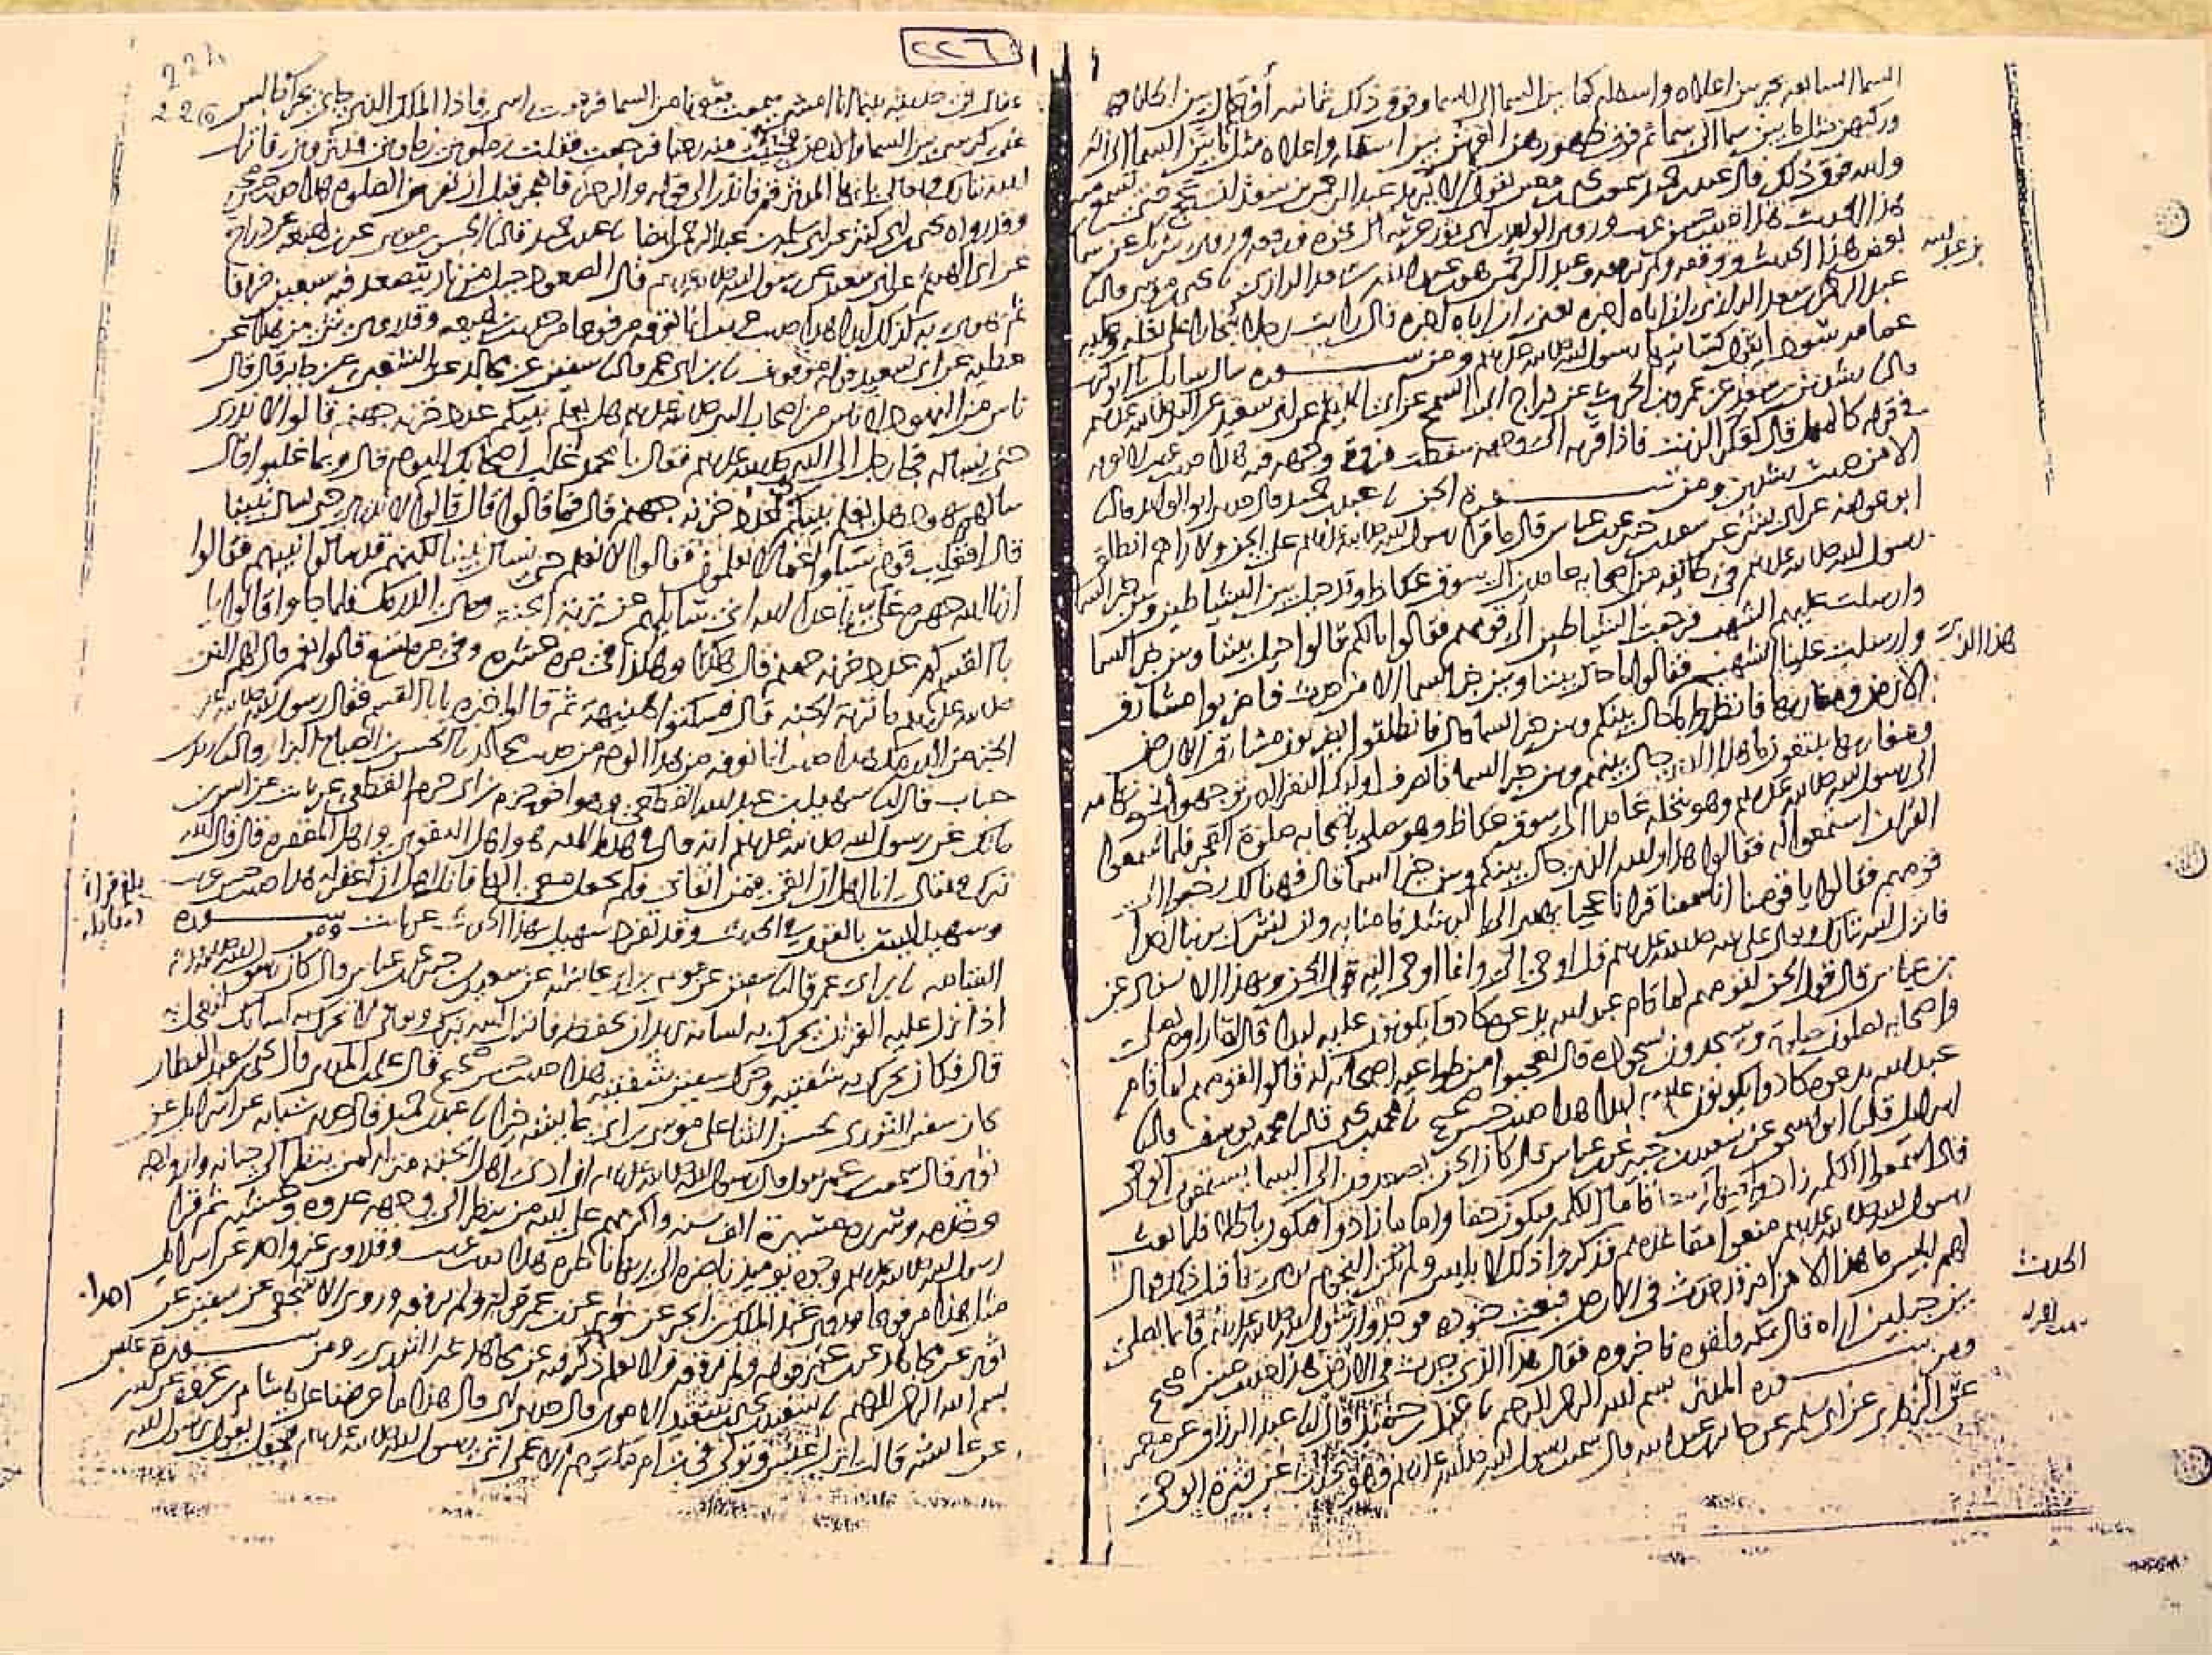 السما السابعه بحر بين اعلاه واسفله كما بين السما الى السما وفوق ذلك ثمانيه أوعال بين اظلافهن
وركبهن مثل ما بين سما الى سما ثم فوق ظهورهن العرش بين اسفله واعلاه مثل ما بين السما الى السما
والله فوق ذلك قال عبد بن حميد سمعت يحيى بن معين يقول الا يريد عبد الرحمن بن سعد ان يحج حتى نسمع منه
هذا الحديث هذا حديث حسن غريب وروى الوليد بن ابي ثور عن سماك نحوه ورفعه وروى شريك عن سماك
بعض هذا الحديث ووقفه ولم يرفعه وعبد الرحمن هو ابن عبد الله بن سعد الرازي يحيى بن موسى قال
بن عبد الله
عبد الرحمن بن سعد الرازي ان اباه اخبره يعني ان اباه اخبره قال رايت رجلا ببخارا على بغله وعليه
عمامه سودا يقول كسانيها رسول الله صلى الله عليه وسلم ومن ســـوره سال سايل ابو كريب
رشدين بن سعد عن عمرو بن الحرث عن دراج ابي السمح عن ابي الهيثم عن ابي سعيد عن النبي صلى الله عليه وسلم
في قوله كالمهل قال كعكر الزيت فاذا قربه الى وجهه سقطت فروة وجهه فيه هذا حديث غريب لا نعرفه
الا من حديث رشدين ومن ســـورة الجن عبد بن حميد قال حدثني ابو الوليد قال
ابو عوانه عن ابي بشر عن سعيد بن جبير عن ابن عباس قال ما قرا رسول الله صلى الله عليه وسلم على الجن ولا راهم انطلق
رسول الله صلى الله عليه وسلم في طائفه من اصحابه عامدين الى سوق عكاظ وقد حيل بين الشياطين وبين خبر السما
وارسلت عليهم الشهب فرجعت الشياطين الى قومهم فقالوا مالكم قالوا حيل بيننا وبين خبر السما
وارسلت علينا الشهب فقالوا ما حال بيننا وبين خبر السما الا من حدث فاضربوا مشارق
هذا الذي
الارض ومغاربها فانظروا ما الذي حال بينكم وبين خبر السما قال فانطلقوا يضربون مشارق الارض
ومغاربها يبتغون ما هذا الذي حال بينهم وبين خبر السما فانصرف اولئك النفر الذين توجهوا نحو تهامه
الى رسول الله صلى الله عليه وسلم وهو بنخله عامدا الى سوق عكاظ وهو يصلي باصحابه صلوة الفجر فلما سمعوا
القران استمعوا له فقالوا هذا والله الذي حال بينكم وبين خبر السما قال فهنالك رجعوا الى
قومهم فقالوا يا قومنا انا سمعنا قرانا عجبا يهدي الى الرشد فامنا به ولن نشرك بربنا احدا
فانزل الله تبارك وتعالى على نبيه صلى الله عليه وسلم قل اوحي الي وانما اوحي اليه قول الجن وبهذا الاسناد عن
بن عباس قال قول الجن لقومهم لما قام عبد الله يدعوه كادوا يكونون عليه لبدا قال لما راوه يصلي
واصحابه يصلون بصلاته ويسجدون بسجوده قال فعجبوا من طواعيه اصحابه له قالوا لقومهم لما قام
عبد الله يدعوه كادوا يكونون عليه لبدا هذا حديث حسن صحيح محمد بن يحيى قال محمد بن يوسف قال
اسرائيل قال ابو اسحق عن سعيد بن جبير عن ابن عباس قال كان الجن يصعدون الى السما يستمعون الوحي
فاذا سمعوا الكلمه زادوا فيها تسعا فاما الكلمه فيكون حقا واما ما زادوا فيكون باطلا فلما بعث
رسول الله صلى الله عليه وسلم منعوا مقاعدهم فذكروا ذلك لابليس ولم تكن النجوم يرمى بها قبل ذلك فقال
لهم ابليس ما هذا الا من امر قد حدث في الارض فبعث جنوده فوجدوا رسول الله صلى الله عليه وسلم قائما يصلي
الحدث
بين جبلين اراه قال بمكه فلقوه فاخبروه فقال هذا الذي حدث في الارض هذا حديث حسن صحيح
ومن ســـوره المدثر بسم الله الرحمن الرحيم عبد بن حميد قال عبد الرزاق عن معمر
عن الزهري عن ابي سلمه عن جابر بن عبد الله قال سمعت رسول الله صلى الله عليه وسلم وهو يحدث عن فترة الوحي
٢٢٦
226
فقال في حديثه بينما انا امشي سمعت صوتا من السما فرفعت راسي فاذا الملك الذي جاني بحرا جالس
على كرسي بين السما والارض فجثثت منه رعبا فرجعت فقلت زملوني زملوني فدثروني فانزل
الله تبارك وتعالى يا ايها المدثر قم فانذر الى قوله والرجز فاهجر قبل ان تفرض الصلوة هذا حديث حسن صحيح
وقد رواه يحيى بن ابي كثير عن ابي سلمه بن عبد الرحمن ايضا عبد بن حميد قال الحسن بن موسى عن ابن لهيعه عن دراج
عن ابي الهيثم عن ابي سعيد عن رسول الله صلى الله عليه وسلم قال الصعود جبل من نار يتصعد فيه سبعين خريفا
ثم يهوى به كذلك ابدا هذا حديث غريب انما نعرفه مرفوعا من حديث ابن لهيعه وقد روى شي من هذا عن
عطيه عن ابي سعيد قوله موقوف بن ابي عمر قال سفين عن مجالد عن الشعبي عن جابر قال قال
ناس من اليهود لاناس من اصحاب النبي صلى الله عليه وسلم هل يعلم نبيكم عدد خزنه جهنم قالوا لا ندري
حتى نساله فجا رجل الى النبي صلى الله عليه وسلم فقال يا محمد غلب اصحابك اليوم قال وبما غلبوا قال
سالهم يهود هل يعلم نبيكم عدد خزنه جهنم قال فما قالوا قال قالوا لا ندري حتى نسال نبينا
قال افغلب قوم سيلوا عما لا يعلمون فقالوا لا نعلم حتى نسال نبينا لكنهم قد سالوا نبيهم فقالوا
ارنا الله جهره علي باعدا الله اني سايلهم عن تربة الجنة وهي الدرمك فلما جاوا قالوا يا
با القسم كم عدد خزنه جهنم قال هكذا وهكذا في مره عشره وفي مره تسع قالوا نعم قال لهم النبي
صلى الله عليه وسلم ما تربة الجنه قال فسكتوا هنيهة ثم قالوا خبزه يا با القسم فقال رسول الله صلى الله عليه
الخبز من الدرمك هذا حديث انما نعرفه من هذا الوجه من حديث مجالد الحسن بن الصباح البزار قال زيد بن
حباب قال سهيل بن عبد الله القطعي وهو اخو حزم بن ابي حزم القطعي عن ثابت عن انس بن
مالك عن رسول الله صلى الله عليه وسلم انه قال في هذه الايه هو اهل التقوى واهل المغفره قال قال الله
تبرك وتعالى انا اهل ان اتقى فمن اتقاني فلم يجعل معي الها فانا اهل ان اغفر له هذا حديث حسن غريب
بلغ قراة
ومقابله
وسهيل ليس بالقوي في الحديث وقد تفرد سهيل بهذا الحديث عن ثابت ومن ســـوره
القيامه بن ابي عمر قال سفين عن موسى بن ابي عايشه عن سعيد بن جبير عن ابن عباس قال كان رسول الله صلى الله عليه وسلم
اذا نزل عليه القران يحرك به لسانه يريد ان يحفظه فانزل الله تبرك وتعالى لا تحرك به لسانك لتعجل به
قال فكان يحرك به شفتيه وحرك سفين شفتيه هذا حديث حسن صحيح قال علي بن المديني قال يحيى بن سعيد القطان
كان سفين الثوري يحسن الثنا على موسى بن ابي عايشه خيرا عبد بن حميد قال حدثني شبابه عن اسرائيل عن
ثوير قال سمعت ابن عمر يقول قال رسول الله صلى الله عليه وسلم ان ادنى اهل الجنه منزله لمن ينظر الى جنانه وازواجه
وخدمه وسرره مسيرة الف سنه واكرمهم على الله من ينظر الى وجهه غدوه وعشيه ثم قرا
رسول الله صلى الله عليه وسلم وجوه يوميذ ناضره الى ربها ناظره هذا حديث غريب وقد روى غير واحد عن اسرائيل
مثل هذا مرفوعا وروى عبد الملك بن ابجر عن ثوير عن ابن عمر قوله ولم يرفعه وروى الاشجعي عن سفين عن
ثوير عن مجاهد عن ابن عمر قوله ولم يرفعه ولا نعلم احدا ذكر فيه عن مجاهد غير الثوري ومن ســـورة عبس
احدا
بسم الله الرحمن الرحيم سعيد بن يحيى بن سعيد الاموي قال حدثني ابي قال هذا ما عرضنا على هشام بن عروه عن ابيه
عن عائشه قالت انزل عبس وتولى في ابن ام مكتوم الاعمى اتى رسول الله صلى الله عليه وسلم فجعل يقول يا رسول الله